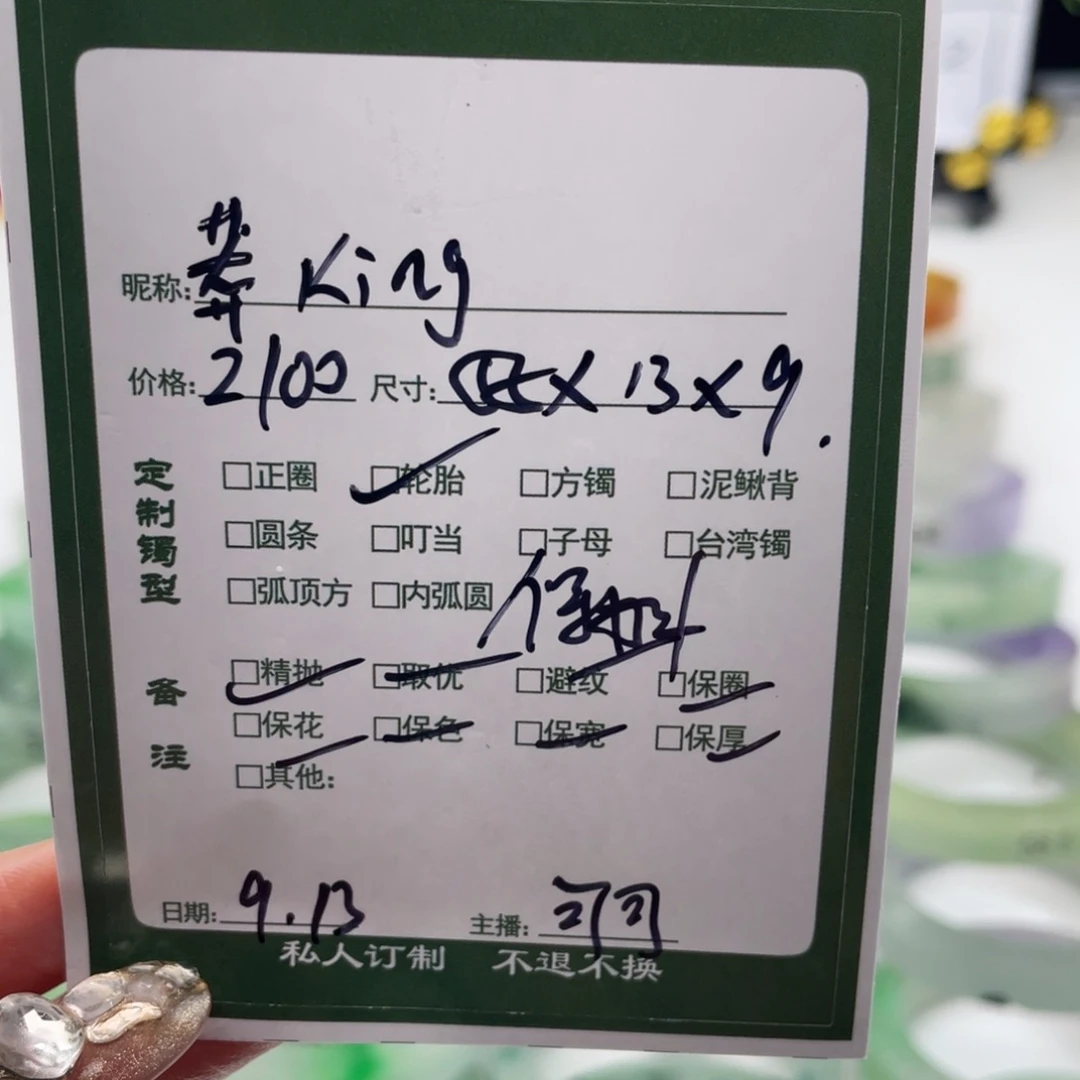 昵称: King
价格: 2100 尺寸: X 13 X 9.
定制镯型
□正圈 □轮胎 □方镯 □泥鳅背
□圆条 □叮当 □子母 □台湾镯
□弧顶方 □内弧圆
备注
□精抛 □取优 □避纹 □保圈
□保花 □保色 □保宽 □保厚
□其他:
日期: 9.13 主播:
私人订制 不退不换